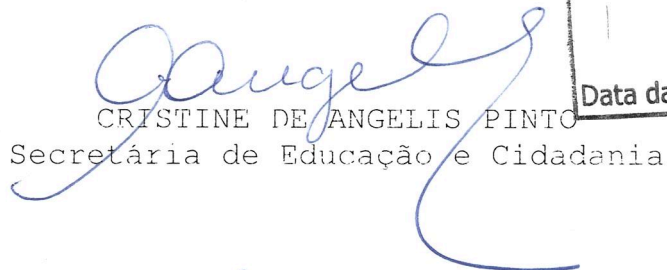 Data da
CRISTINE DE ANGELIS PINTO
Secretária de Educação e Cidadania